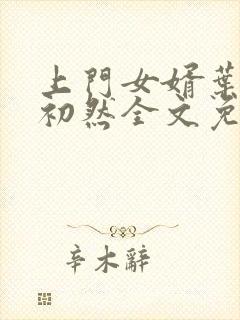 上門女婿葉
初然全文免
辛木辭